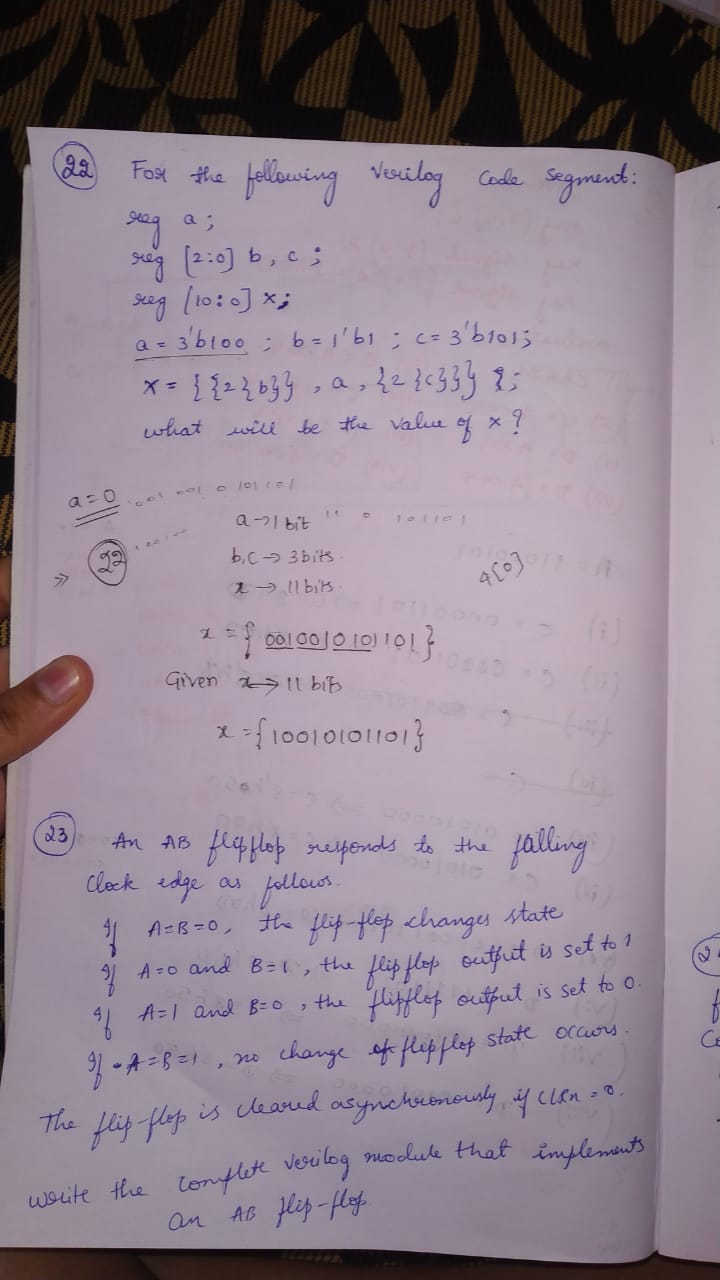 22 For the following Verilog code segment:
reg a;
reg [2:0] b, c;
reg [10:0] x;
a = 3'b100 ; b = 1'b1 ; c = 3'b101;
x = { {2{b}} , a , {2{c}}} };
what will be the value of x?
a=0 001 001 0 101101
a→1 bit 11 0 101101
>> 22
b,c → 3 bits.
x → 11 bits.
4[0]
x = { 0010010101101}
Given x → 11 bits
x = {10010101101}
23 An AB flipflop responds to the falling
clock edge as follows.
If A=B=0, the flip-flop changes state
If A=0 and B=1, the flipflop output is set to 1
If A=1 and B=0, the flipflop output is set to 0.
If A=B=1, no change of flipflop state occurs.
The flip-flop is cleared asynchronously if CLRn = 0.
write the complete verilog module that implements
an AB flip-flop.